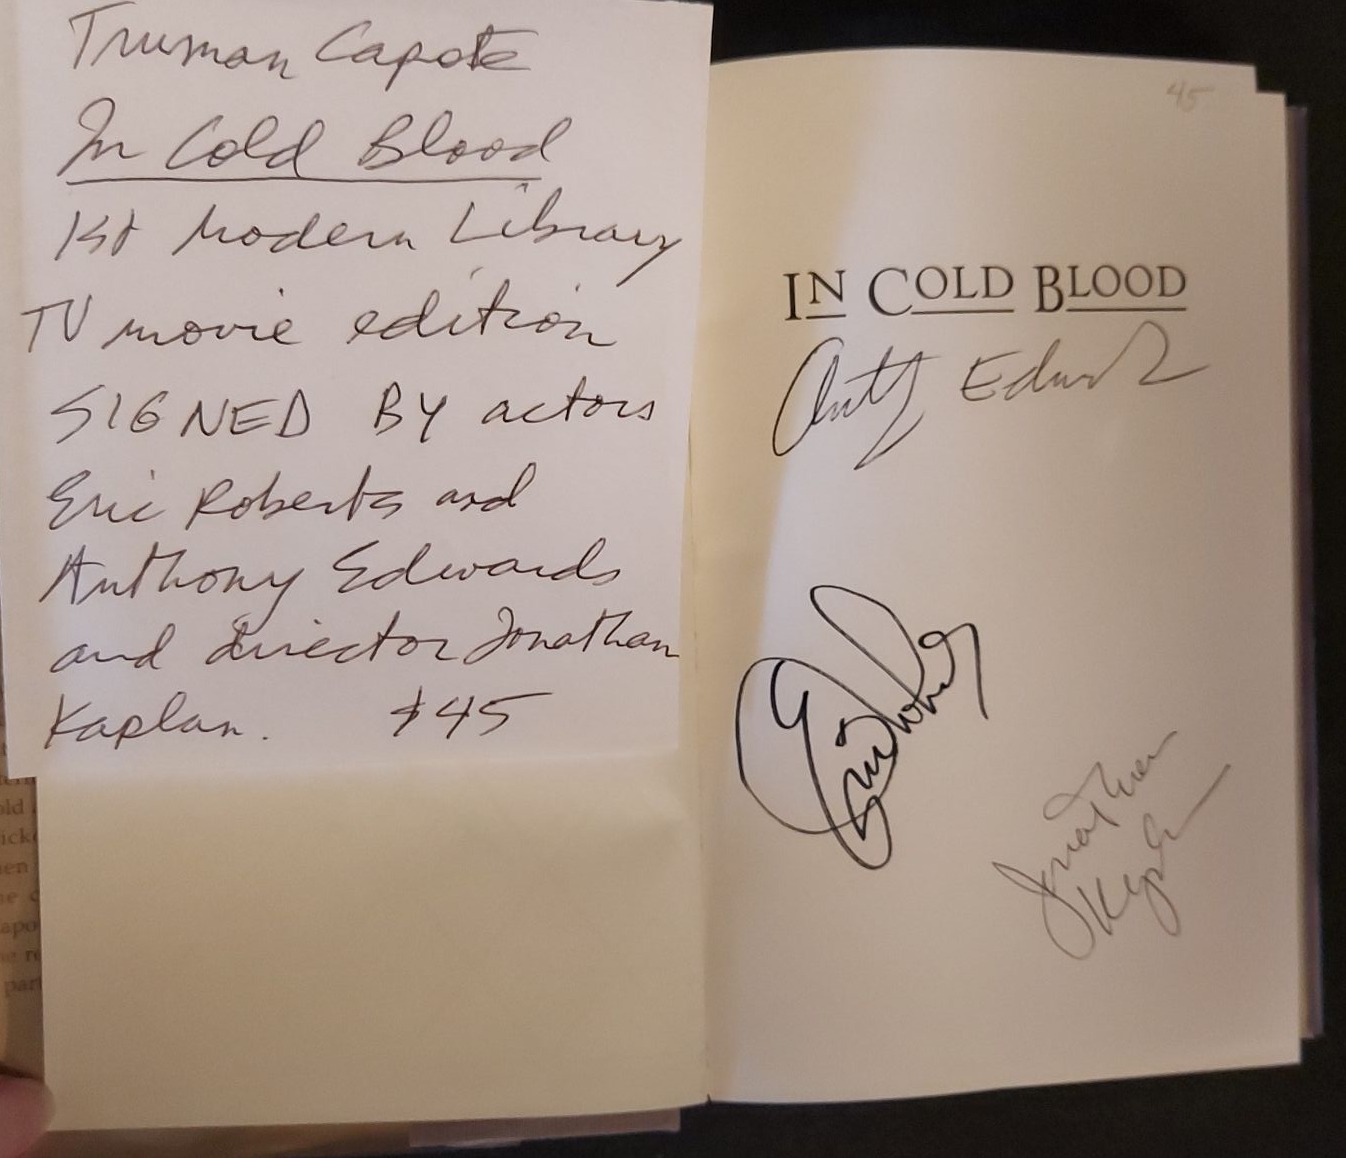 Truman Capote
In Cold Blood
1st Modern Library
TV movie edition
SIGNED BY actors
Eric Roberts and
Anthony Edwards
and director Jonathan
Kaplan. $45
45
IN COLD BLOOD
Anthony Edwards
Eric Roberts
Jonathan
Kaplan